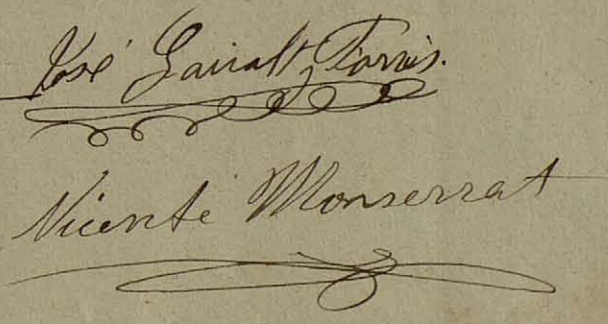 José Garralt y Tarrés.
Vicente Monserrat